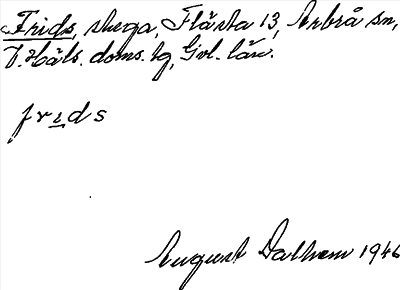 Frids, skega, Flästa 13, Arbrå sn,
V. Häls. doms. tg, Gvl. län.
frids
August Dalhem 1946